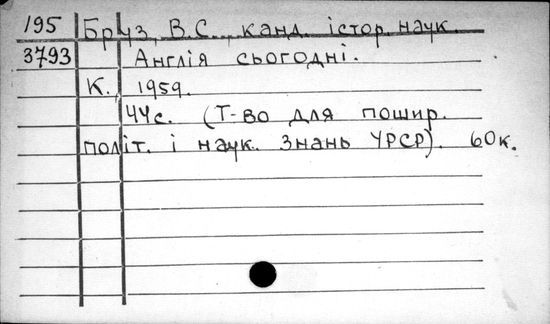 195 Бруз, В.С., канд. істор. наук.
3793 Англія сьогодні.
К., 1959.
44с. (Т-во для пошир.
політ. і наук. знань УРСР). 60к.